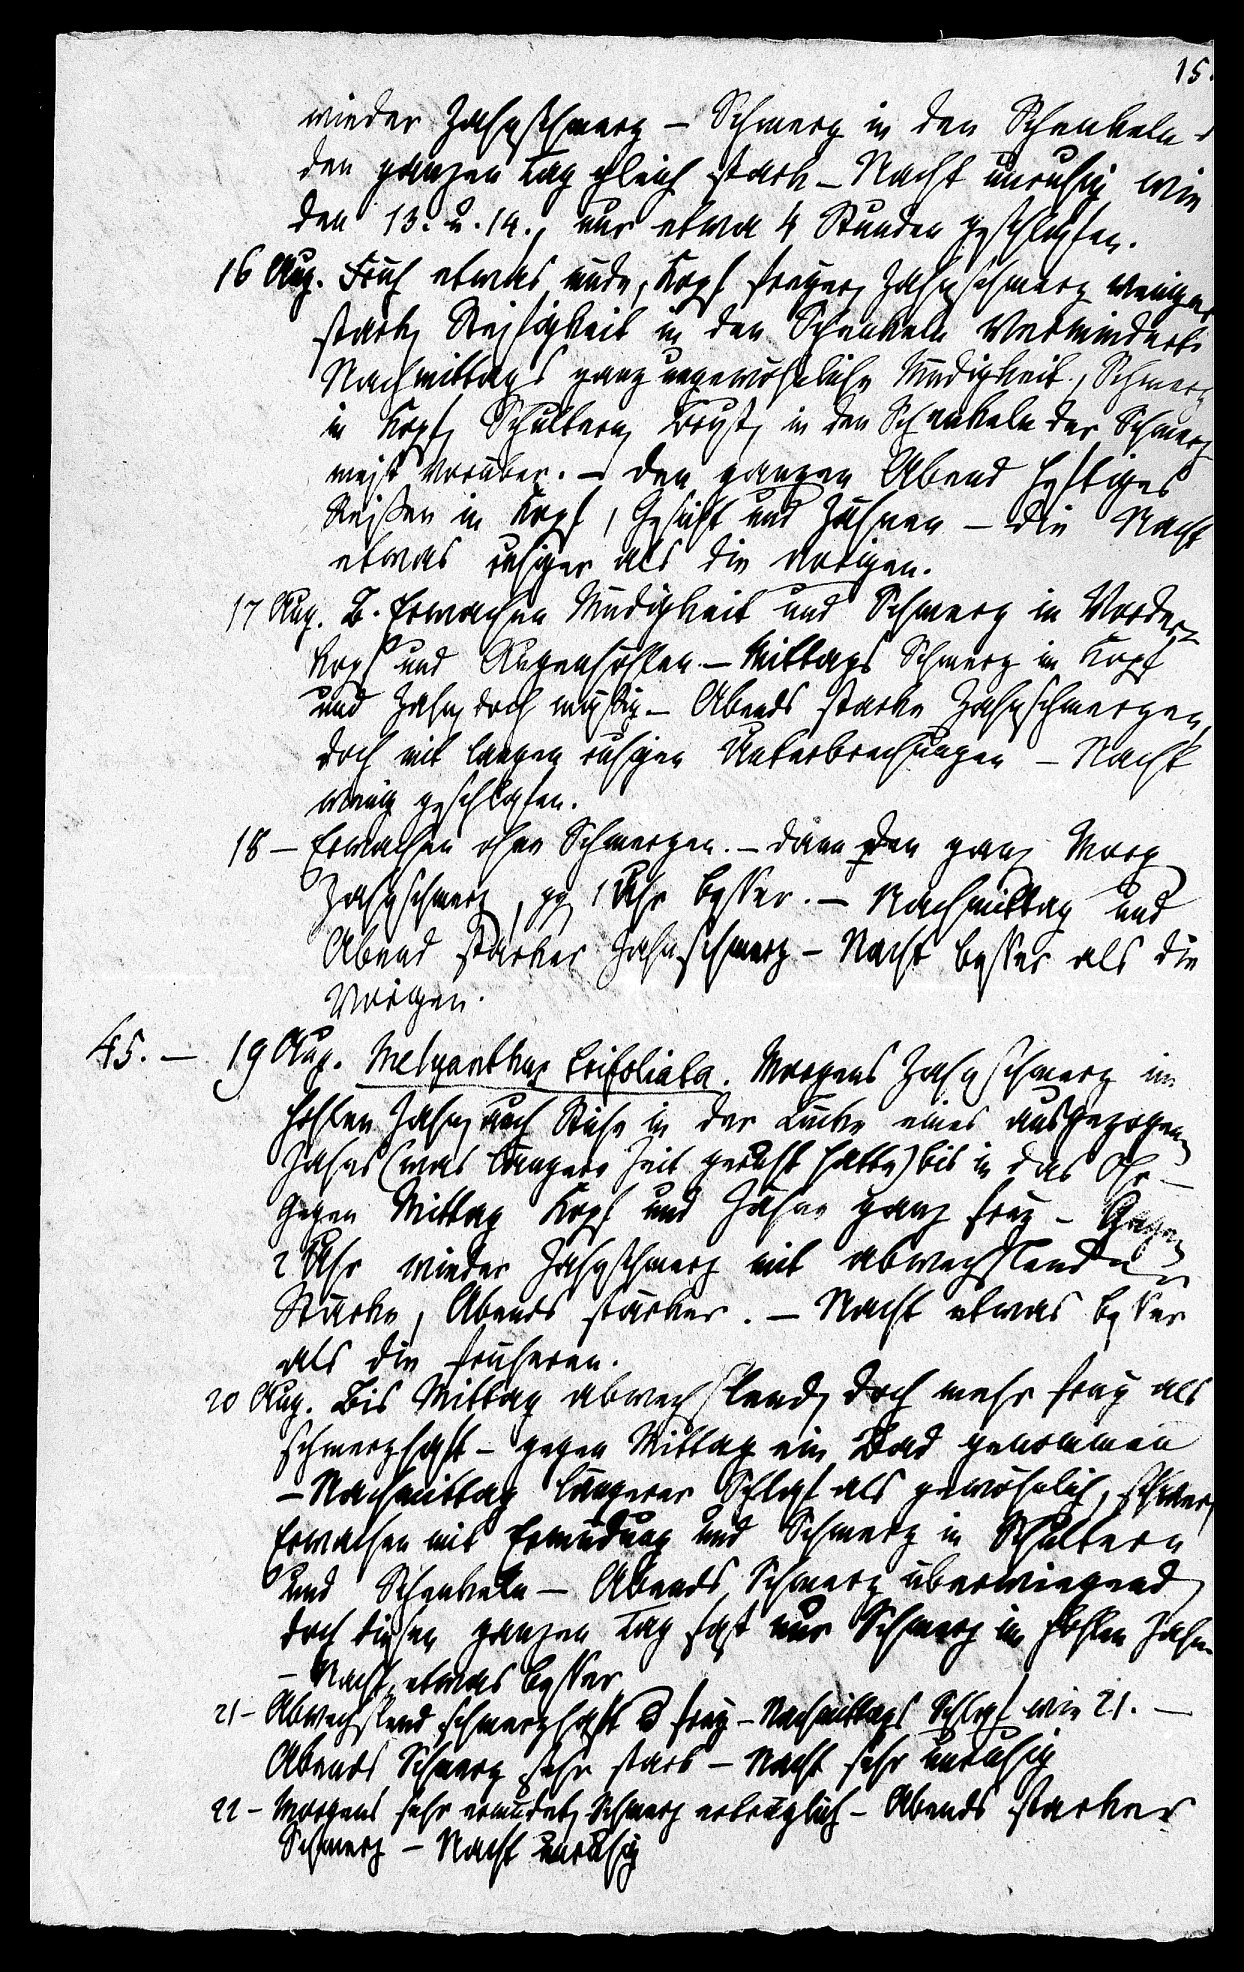 15.
wieder Zahnschmerz – Schmerz in den Schenkeln
den ganzen Tag gleich stark – Nacht unruhig wie
den 13. u. 14., nur etwa 4 Stunden geschlafen.
16 Aug. Früh etwas müde, Kopf freyer, Zahnschmerz weniger
stark, Steifigkeit in den Schenkeln vermindert.
Nachmittags ganz ungewöhnliche Müdigkeit, Schmerz
in Kopf, Schultern, Brust, in den Schenkeln der Schmerz
meist vorüber. – Den ganzen Abend heftiges
Reißen in Kopf, Gesicht und Zähnen – die Nacht
etwas ruhiger als die vorigen.
17 Aug. B. Erwachen Müdigkeit und Schmerz in Vorder-
kopf und Augenhöhlen. – Mittags Schmerz im Kopf
und Zahn, doch mäßig – Abends starke Zahnschmerzen,
doch mit langen ruhigen Unterbrechungen – Nacht
wenig geschlafen.
18 – Erwachen ohne Schmerzen. – dann den ganz Morg
Zahnschmerz, gg 1 Uhr besser. – Nachmittag und
Abend starker Zahnschmerz – Nacht besser als die
Vorigen.
45. – 19 Aug. Menyanthes trifoliata. Morgens Zahnschmerz im
hohlen Zahn, auch Stiche in der Lücke eines ausgezogenen
Zahns (was längere Zeit geruht hatte) bis in das Ohr –
Gegen Mittag Kopf und Zähne ganz frey – Gegen
2 Uhr wieder Zahnschmerz mit abwechslender
Stärke, Abends stärker. – Nacht etwas besser
als die früheren.
20 Aug. Bis Mittag abwechslend, doch mehr frey als
schmerzhaft – gegen Mittag ein Bad genommen
– Nachmittag längerer Schlaf als gewöhnlich, schwer,
Erwachen mit Ermüdung und Schmerz in Schultern
und Schenkeln – Abends Schmerz überwiegend,
doch diesen ganzen Tag fast nur Schmerz im hohlen Zahn
– Nacht etwas besser
21 – Abwechslend schmerzhaft u frey – Nachmittags Schlaf wie 21. –
Abends Schmerz sehr stark – Nacht sehr unruhig
22 – Morgens sehr ermüdet, Schmerz erträglich – Abends starker
Schmerz – Nacht unruhig